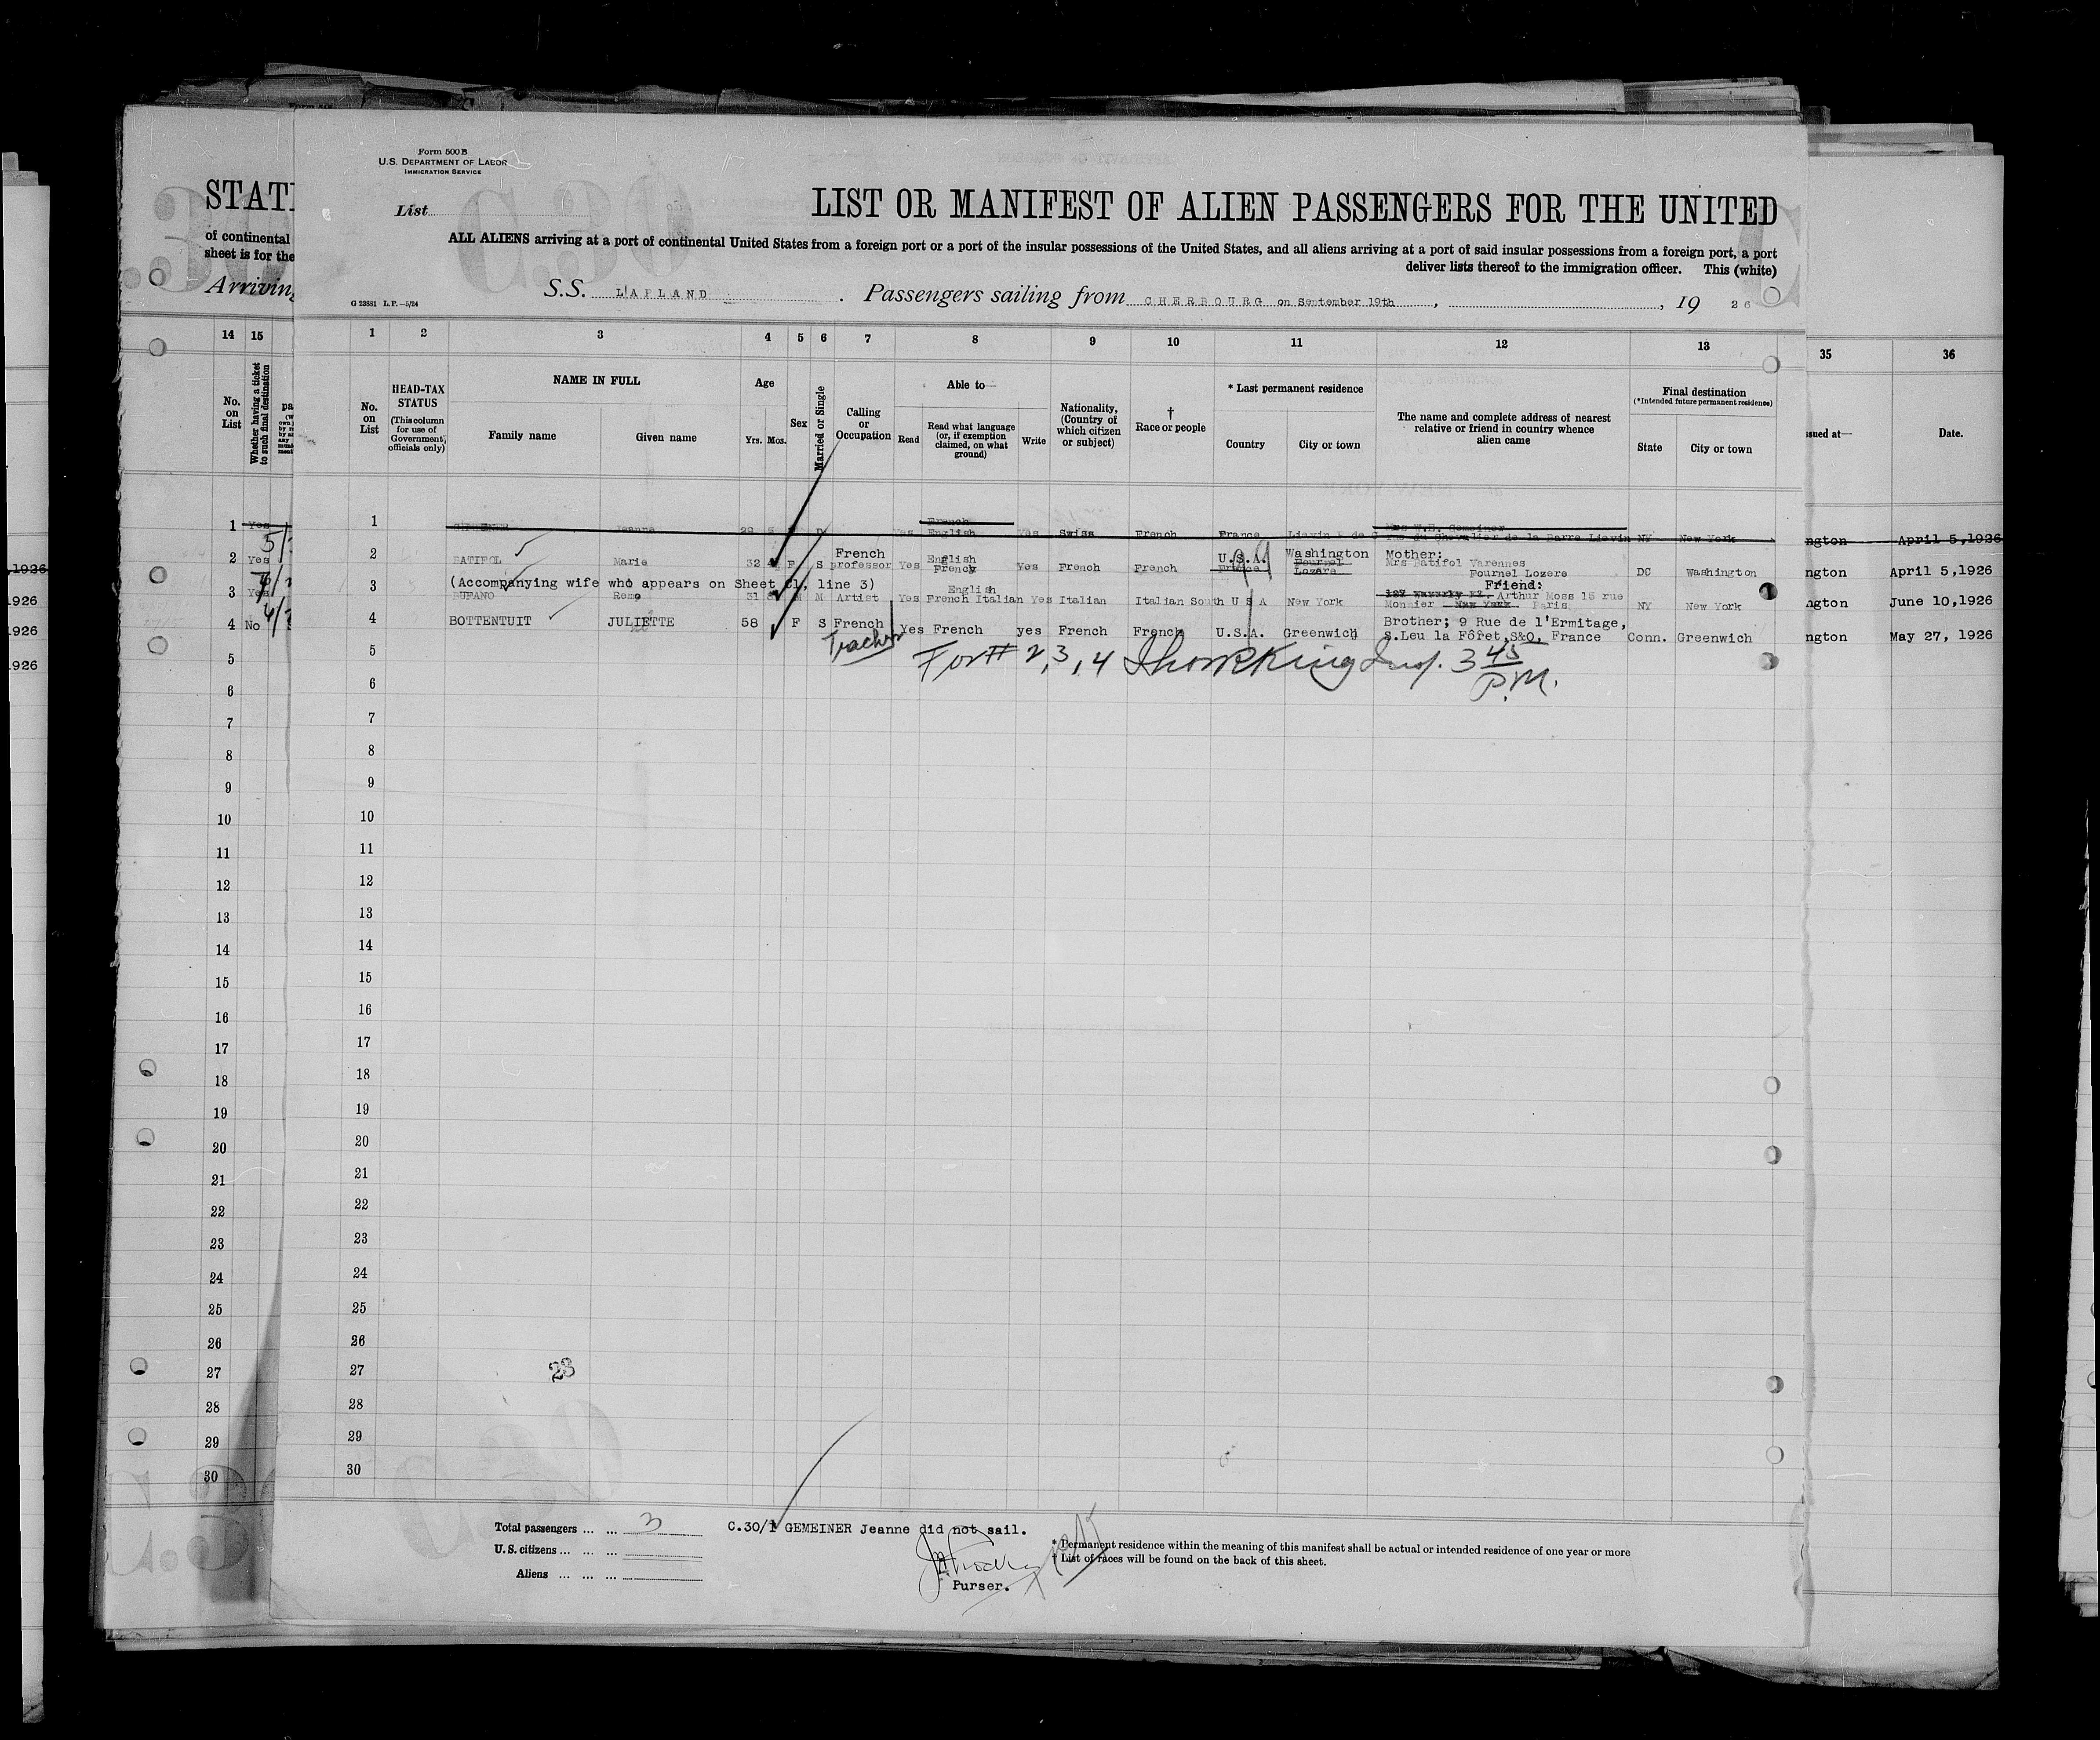 Form 500 B
U.S. DEPARTMENT OF LABOR
IMMIGRATION SERVICE
STAT
List
LIST OR MANIFEST OF ALIEN PASSENGERS FOR THE UNITED
of continental
sheet is for the
ALL ALIENS arriving at a port of continental United States from a foreign port or a port of the insular possessions of the United States, and all aliens arriving at a port of said insular possessions from a foreign port, a port
deliver lists thereof to the immigration officer. This (white)
Arriving
G 23881 L.P.—5/24
S.S. LAPLAND . Passengers sailing from CHERBOURG on September 19th, , 19 26
14 15 1 2 3 4 5 6 7 8 9 10 11 12 13 35 36
No. on List
Whether having a ticket to such final destination
No. on List
HEAD-TAX STATUS
(This column for use of Government officials only)
NAME IN FULL
Family name
Given name
Age
Yrs. Mos.
Sex
Married or Single
Calling or Occupation
Able to—
Read
Read what language (or, if exemption claimed, on what ground)
Write
Nationality. (Country of which citizen or subject)
† Race or people
* Last permanent residence
Country
City or town
The name and complete address of nearest relative or friend in country whence alien came
Final destination
(*Intended future permanent residence)
State
City or town
ssued at—
Date.
1 Yes
1 Jeanne French English Yes Swiss French France NY New York
rue du Chevalier de la Barre Lievin
ngton April 5,1926
2 Yes
2 BATIFOL Marie 32 F S French professor Yes English French Yes French French U.S.A. France Washington Fournel Lozere Mother:
Mrs Batifol Varennes
Fournel Lozere DC Washington
ngton April 5,1926
3 Yes
3 (Accompanying wife who appears on Sheet C1, line 3)
BUFANO Remo 31 M M Artist Yes English French Italian Yes Italian Italian South U S A New York Friend:
Arthur Moss 15 rue
Monnier New York Paris NY New York
ngton June 10,1926
4 No
4 BOTTENTUIT JULIETTE 58 F S French Teacher Yes French yes French French U.S.A. Greenwich Brother; 9 Rue de l'Ermitage,
S.Leu la Fôret,S&O, France Conn. Greenwich
ngton May 27, 1926
,1926
926
926
926
For # 2, 3, 4 King Insp. 3 45 P.M.
5 5
6 6
7 7
8 8
9 9
10 10
11 11
12 12
13 13
14 14
15 15
16 16
17 17
18 18
19 19
20 20
21 21
22 22
23 23
24 24
25 25
26 26
27 27
23
28 28
29 29
30 30
Total passengers ... ... 3
U.S. citizens ... ... ...
Aliens ... ... ...
C.30/1 GEMEINER Jeanne did not sail.
Purser.
* Permanent residence within the meaning of this manifest shall be actual or intended residence of one year or more
† List of races will be found on the back of this sheet.